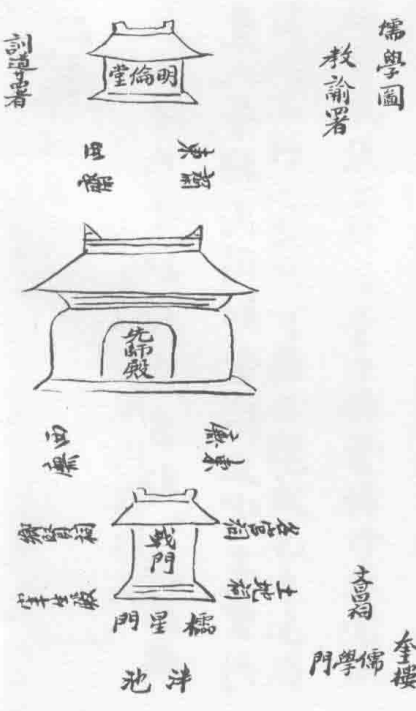 儒學圖
教諭署
訓道署
明倫堂
東齋
西齋
先師殿
東廡
西廡
戟門
名宦祠
土地祠
鄉賢祠
櫺星門
泮池
文昌祠
奎樓
儒學門